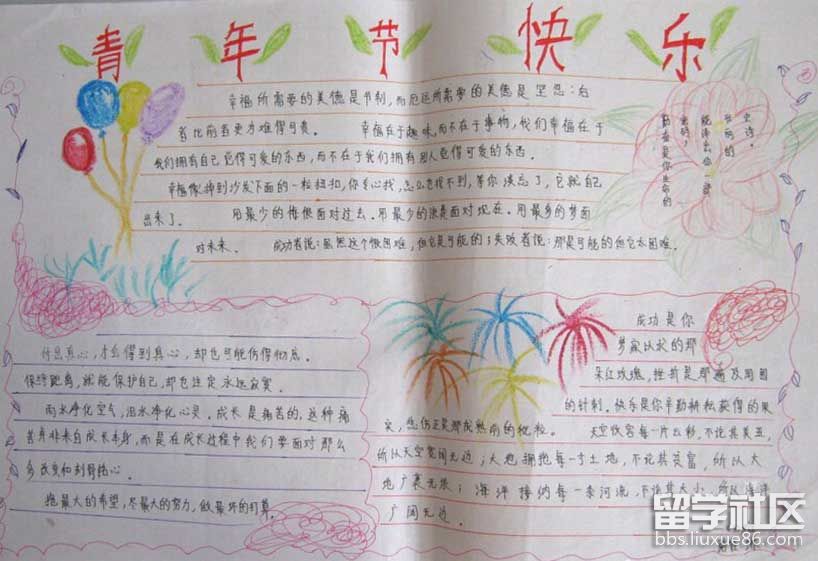 青年节快乐
幸福所需要的美德是节制,而厄运所需要的美德是坚忍;后
者比前者更为难得可贵。 幸福在于趣味,而不在于事物,我们幸福在于
我们拥有自己觉得可爱的东西,而不在于我们拥有别人觉得可爱的东西。
幸福像掉到沙发下面的一粒纽扣,你专心找,怎么也找不到,等你淡忘了,它就自己
出来了。 用最少的悔恨面对过去。用最少的浪费面对现在。用最多的梦面
对未来。 成功者说:虽然这个很困难,但它是可能的;失败者说:那是可能的但它太困难。
史诗。
付出真心,才会得到真心,却也可能伤得彻底。
保持距离,就能保护自己,却也注定永远寂寞。
雨水净化空气,泪水净化心灵。成长是痛苦的,这种痛
苦并非来自成长本身,而是在成长过程中我们要面对那么
多改变和刻骨铭心。
抱最大的希望,尽最大的努力,做最坏的打算。
成功是你
梦寐以求的那
朵红玫瑰,挫折是那遍及周围
的针刺。快乐是你辛勤耕耘获得的果
实,悲伤正是那成熟前的秕粒。 天空收容每一片云彩,不论其美丑,
所以天空宽阔无边;大地拥抱每一寸土地,不论其贫富,所以大
地广袤无垠;海洋接纳每一条河流,不论其大小,所以海洋
广阔无边。
留学社区
bbs.liuxue86.com